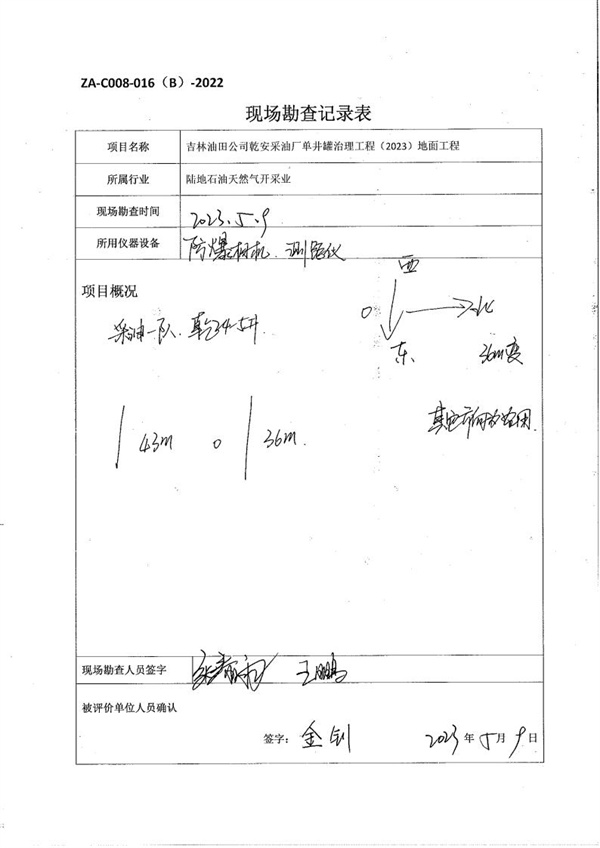 ZA-C008-016（B）-2022
现场勘查记录表
项目名称 吉林油田公司乾安采油厂单井罐治理工程（2023）地面工程
所属行业 陆地石油天然气开采业
现场勘查时间 2023.5.9
所用仪器设备 防爆相机、测距仪
项目概况
西
北
东
采油一队、乾234-5井
36m
43m
36m
现场勘查人员签字 王鹏
被评价单位人员确认
签字：金钊 2023年5月9日